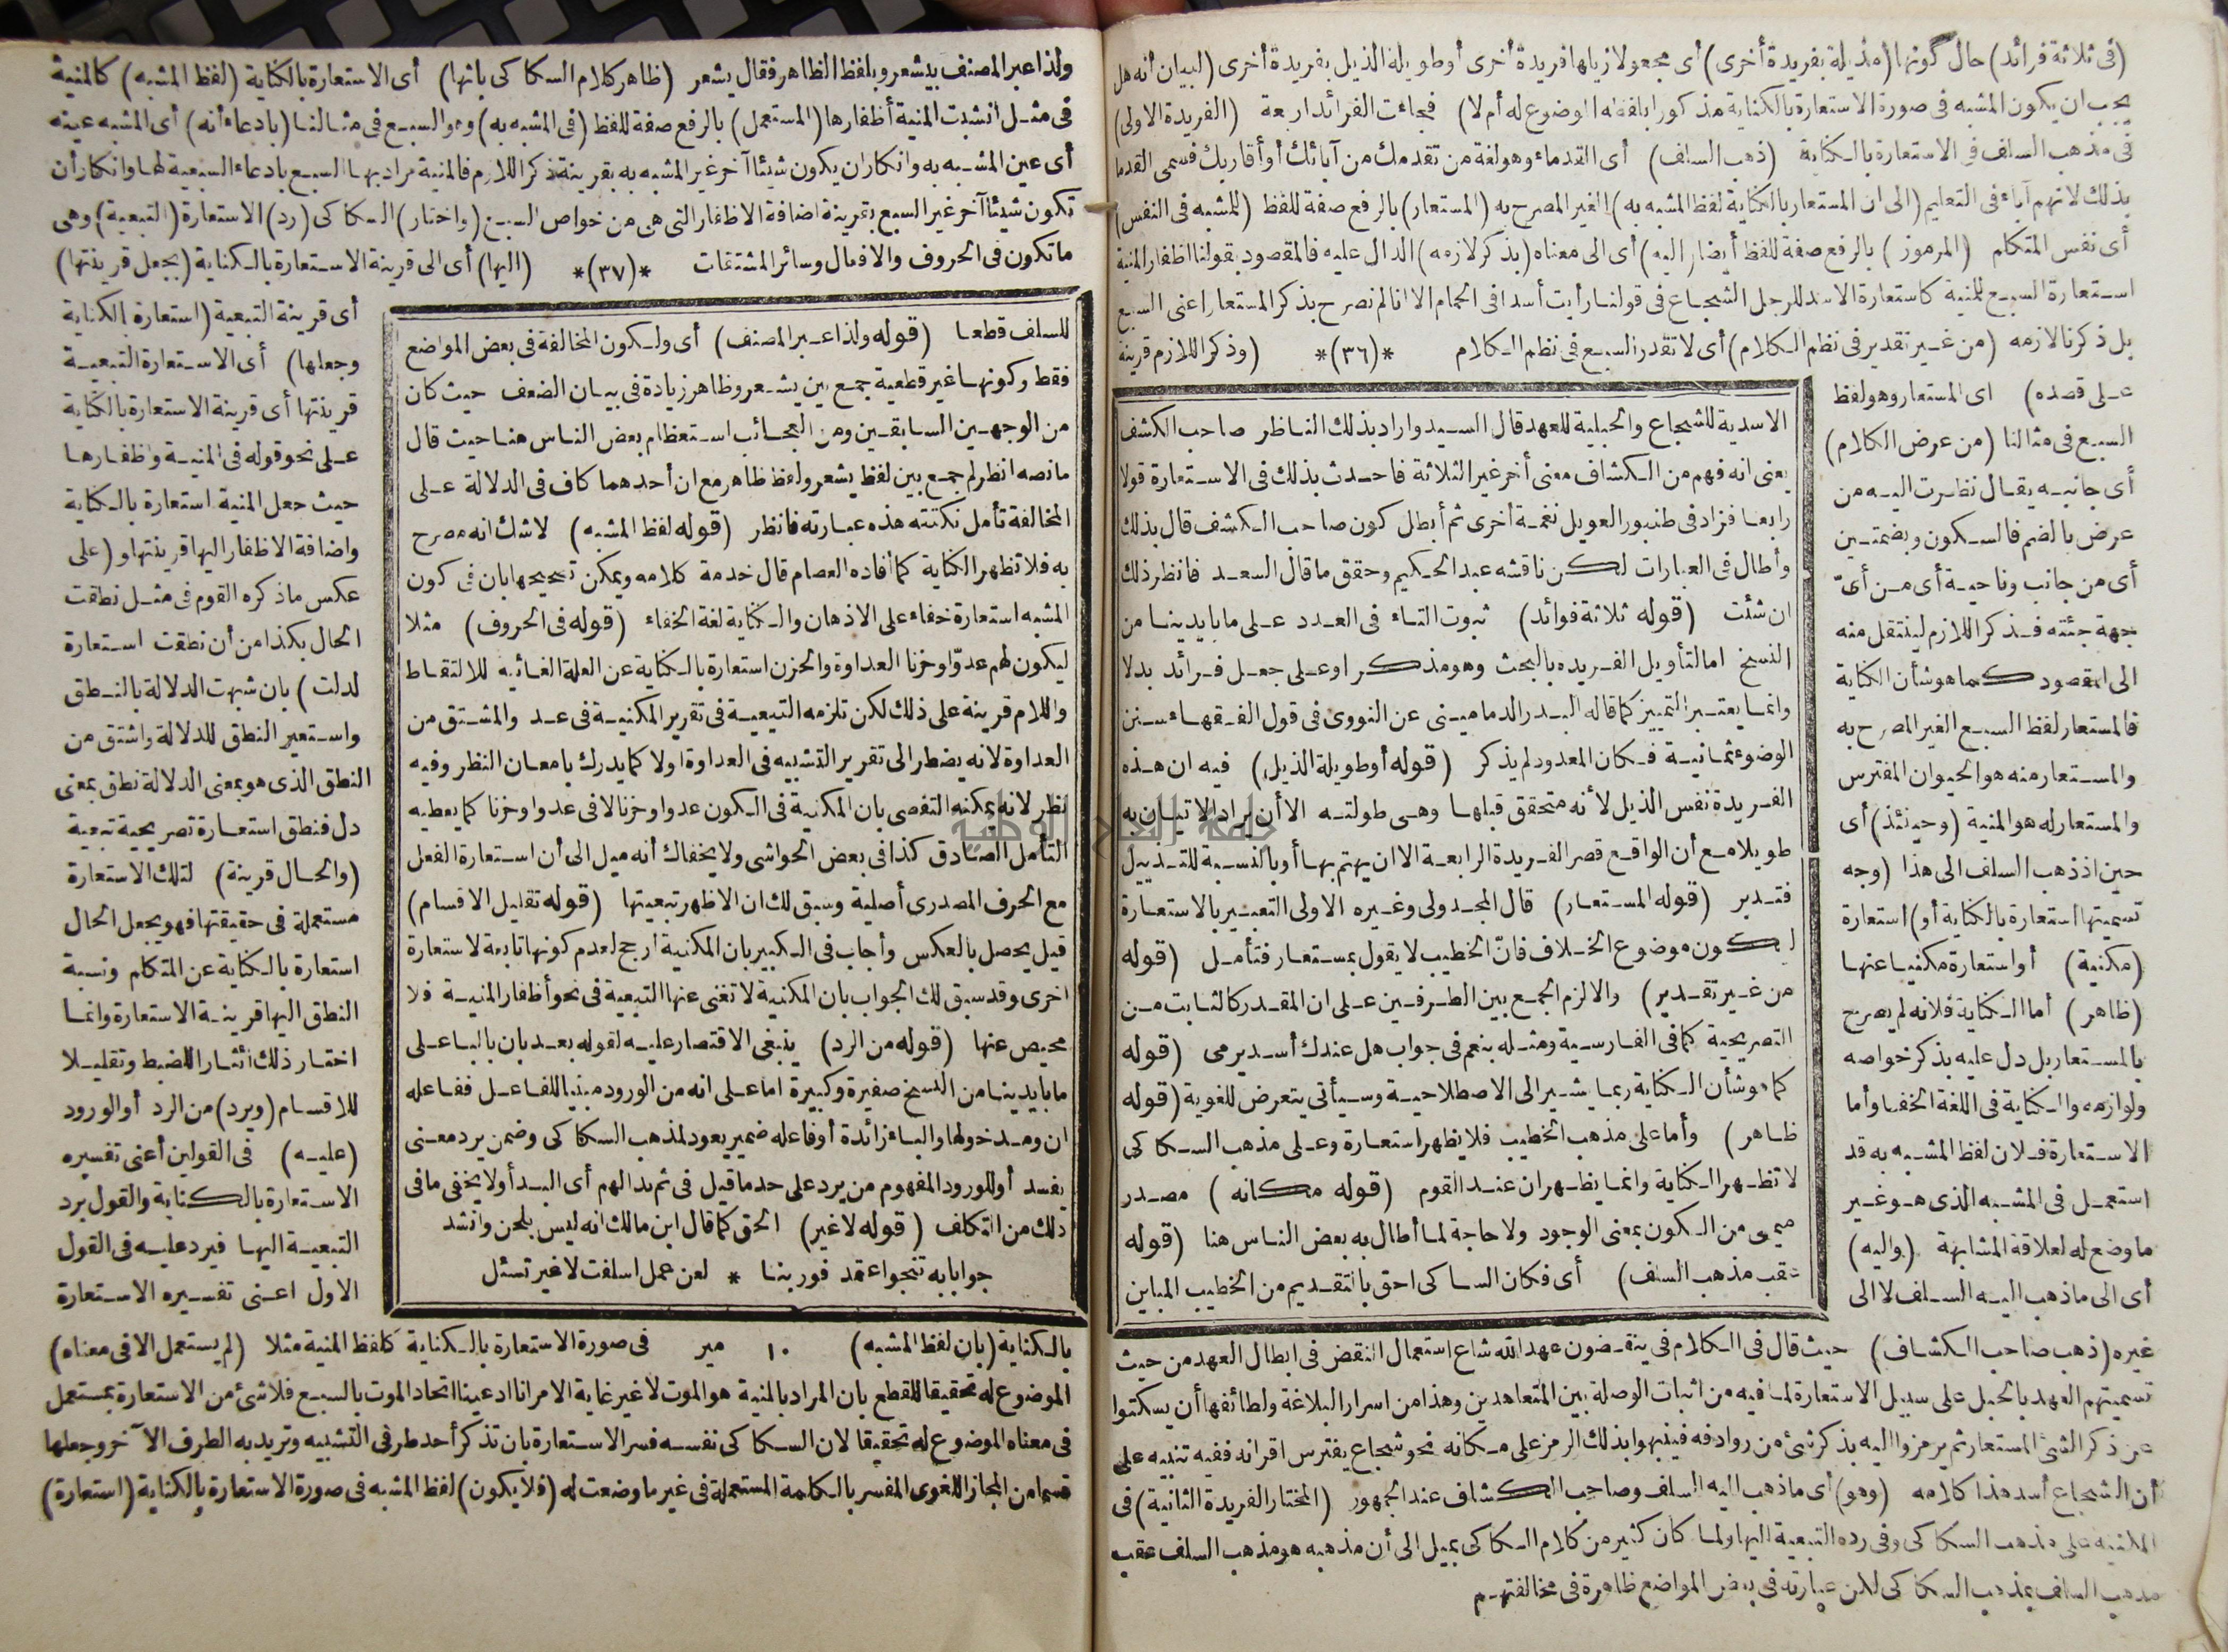 (فى ثلاثة فرائد) حال كونها (مذيلة بفريدة أخرى) أى مجعولا ذيلها فريدة أخرى أو طويلة الذيل بفريدة أخرى (لبيان أنه هل
يجب ان يكون المشبه فى صورة الاستعارة بالكناية مذكورا بلفظه الموضوع له أم لا) فجاءت الفرائد اربعة (الفريدة الاولى)
فى مذهب السلف فى الاستعارة بالكناية (ذهب السلف) أى القدماء وهو لغة من تقدمك من آبائك أو أقاربك فسمى القدما
بذلك لانهم آباء فى التعليم (الى ان المستعار بالكناية لفظ المشبه به) الغير المصرح به (المستعار) بالرفع صفة للفظ (للمشبه فى النفس)
أى نفس المتكلم (المرموز) بالرفع صفة للفظ أيضا (اليه) أى الى معناه (بذكر لازمه) الدال عليه فالمقصود بقولنا اظفار المنية
استعارة السبع للمنية كاستعارة الاسد للرجل الشجاع فى قولنا رأيت أسدا فى الحمام الا انا لم نصرح بذكر المستعار اعنى السبع
بل ذكرنا لازمه (من غير تقدير فى نظم الكلام) أى لا تقدر السبع فى نظم الكلام *(٣٦)* (وذكر اللازم قرينة
على قصده) اى المستعار وهو لفظ
السبع فى مثالنا (من عرض الكلام)
أى جانبه يقال نظرت اليه من
عرض بالضم فالسكون وبضمتين
أى من جانب وناحية أى من أىّ
جهة جئته فذكر اللازم لينتقل منه
الى المقصود كما هو شأن الكناية
فالمستعار لفظ السبع الغير المصرح به
والمستعار منه هو الحيوان المفترس
والمستعار له هو المنية (وحينئذ) أى
حين اذ ذهب السلف الى هذا (وجه
تسميتها استعارة بالكناية أو) استعارة
(مكنية) أو استعارة مكنيا عنها
(ظاهر) أما الكناية فلانه لم يصرح
بالمستعار بل دل عليه بذكر خواصه
ولوازمه والكناية فى اللغة الخفا وأما
الاستعارة فلان لفظ المشبه به قد
استعمل فى المشبه الذى هو غير
ما وضع له لعلاقة المشابهة (واليه)
أى الى ما ذهب اليه السلف لا الى
الاسدية للشجاع والحبلية للعهد قال السيد واراد بذلك الناظر صاحب الكشف
يعنى انه فهم من الكشاف معنى أخر غير الثلاثة فاحدث بذلك فى الاستعارة قولا
رابعا فزاد فى طنبور العويل نغمة أخرى ثم أبطل كون صاحب الكشف قال بذلك
وأطال فى العبارات لكن ناقشه عبد الحكيم وحقق ما قال السعد فانظر ذلك
ان شئت (قوله ثلاثة فوائد) ثبوت التاء فى العدد على ما بايدينا من
النسخ اما لتأويل الفريده بالبحث وهو مذكر او على جعل فرائد بدلا
وانما يعتبر التمييز كما قاله البدر الدمامينى عن النووى فى قول الفقهاء سنن
الوضوء ثمانية فكان المعدود لم يذكر (قوله أو طويلة الذيل) فيه ان هذه
الفريدة نفس الذيل لأنه متحقق قبلها وهى طولته الا أن يراد الاتيان به
طويلا مع أن الواقع قصر الفريدة الرابعة الا ان يهتم بها أو بالنسبة للتذييل
فتدبر (قوله المستعار) قال المجدولى وغيره الاولى التعبير بالاستعارة
لكون موضوع الخلاف فانّ الخطيب لا يقول بمستعار فتأمل (قوله
من غير تقدير) والا لزم الجمع بين الطرفين على ان المقدر كالثابت من
التصريحية كما فى الفارسية ومثله بنعم فى جواب هل عندك أسد يرمى (قوله
كما هو شأن الكناية ربما يشير الى الاصطلاحية وسيأتى يتعرض للغوية (قوله
ظاهر) وأما على مذهب الخطيب فلا يظهر استعارة وعلى مذهب السكاكى
لا تظهر الكناية وانما يظهران عند القوم (قوله مكانه) مصدر
ميمى من الكون بمعنى الوجود ولا حاجة لما أطال به بعض الناس هنا (قوله
عقب مذهب السلف) أى فكان السكاكى احق بالتقديم من الخطيب المباين
غيره (ذهب صاحب الكشاف) حيث قال فى الكلام فى ينقضون عهد الله شاع استعمال النقض فى ابطال العهد من حيث
تسميتهم العهد بالحبل على سبيل الاستعارة لما فيه من اثبات الوصلة بين المتعاهدين وهذا من اسرار البلاغة ولطائفها أن يسكتوا
عن ذكر الشئ المستعار ثم يرمزوا اليه بذكر شئ من روادفه فينبهوا بذلك الرمز على مكانه نحو شجاع يفترس اقرانه ففيه تنبيه على
أن الشجاع أسد هذا كلامه (وهو) أى ما ذهب اليه السلف وصاحب الكشاف عند الجمهور (المختار الفريدة الثانية) فى
على مذهب السكاكى وفى رده التبعية اليها ولما كان كثير من كلام السكاكى يميل الى أن مذهبه هو مذهب السلف عقب
مذهب السلف بمذهب السكاكى لكن عبارته فى بعض المواضع ظاهرة فى مخالفتهم
ولذا عبر المصنف بيشعر وبلفظ الظاهر فقال يشعر (ظاهر كلام السكاكى بانها) أى الاستعارة بالكناية (لفظ المشبه) كالمنية
فى مثل انشبت المنية أظفارها (المستعمل) بالرفع صفة للفظ (فى المشبه به) وهو السبع فى مثالنا (بادعاء أنه) أى المشبه عينه
أى عين المشبه به وانكار ان يكون شيئا آخر غير المشبه به بقرينة ذكر اللازم فالمنية مراد بها السبع بادعاء السبعية لها وانكار أن
تكون شيئا آخر غير السبع بقرينة اضافة الاظفار التى هى من خواص السبع (واختار) السكاكى (رد) الاستعارة (التبعية) وهى
ما تكون فى الحروف والافعال وسائر المشتقات *(٣٧)* (اليها) أى الى قرينة الاستعارة بالكناية (بجعل قرينتها)
أى قرينة التبعية (استعارة بالكناية
وجعلها) أى الاستعارة التبعية
قرينتها أى قرينة الاستعارة بالكناية
على نحو قوله فى المنية واظفارها
حيث جعل المنية استعارة بالكناية
واضافة الاظفار اليها قرينتها و (على
عكس ما ذكره القوم فى مثل نطقت
الحال بكذا من أن نطقت استعارة
لدلت) بان شبهت الدلالة بالنطق
واستعير النطق للدلالة واشتق من
النطق الذى هو بمعنى الدلالة نطق بمعنى
دل فنطق استعارة تصريحية تبعية
(والحال قرينة) لتلك الاستعارة
مستعملة فى حقيقتها فهو يجعل الحال
استعارة بالكناية عن المتكلم ونسبة
النطق اليها قرينة الاستعارة وانما
اختار ذلك ايثارا للضبط وتقليلا
للاقسام (ويرد) من الرد أو الورود
(عليه) فى القولين أعنى تفسيره
الاستعارة بالكناية والقول برد
التبعية اليها فيرد عليه فى القول
الاول اعنى تفسيره الاستعارة
للسلف قطعا (قوله ولذا عبر المصنف) أى ولكون المخالفة فى بعض المواضع
فقط وكونها غير قطعية جمع بين يشعر وظاهر زيادة فى بيان الضعف حيث كان
من الوجهين السابقين ومن العجائب استعظام بعض الناس هنا حيث قال
ما نصه انظر لم جمع بين لفظ يشعر ولفظ ظاهر مع ان أحدهما كاف فى الدلالة على
المخالفة تأمل نكتته هذه عبارته فانظر (قوله لفظ المشبه) لا شك انه مصرح
به فلا تظهر الكناية كما أفاده العصام قال خدمة كلامه ويمكن تصحيحها بان فى كون
المشبه استعارة خفاء على الاذهان والكناية لغة الخفاء (قوله فى الحروف) مثلا
ليكون لهم عدوّا وحزنا العداوة والحزن استعارة بالكناية عن العلة الغائيه للالتقاط
واللام قرينة على ذلك لكن تلزمه التبعية فى تقرير المكنية فى عد والمشتق من
العداوة لانه يضطر الى تقرير التشبيه فى العداوة اولا كما يدرك بامعان النظر وفيه
نظر لانه يمكنه التفصى بان المكنية فى الكون عدوا وحزنا لا فى عدوا وحزنا كما يعطيه
التأمل الصادق كذا فى بعض الحواشى ولا يخفاك أنه ميل الى أن استعارة الفعل
مع الحرف المصدرى أصلية وسبق لك ان الاظهر تبعيتها (قوله تقليل الاقسام)
قيل يحصل بالعكس وأجاب فى الكبير بان المكنية ارجح لعدم كونها تابعة لاستعارة
اخرى وقد سبق لك الجواب بان المكنية لا تغنى عنها التبعية فى نحو أظفار المنية فلا
محيص عنها (قوله من الرد) ينبغى الاقتصار عليه لقوله بعد بان بالبا على
ما بايدينا من النسخ صغيرة وكبيرة اما على انه من الورود مبنيا للفاعل ففاعله
ان ومدخولها والباء زائدة أو فاعله ضمير يعود لمذهب السكاكى وضمن يرد معنى
يفسد أو للورود المفهوم من يرد على حد ما قيل فى ثم بدا لهم أى البدأ ولا يخفى ما فى
ذلك من التكلف (قوله لا غير) الحق كما قال ابن مالك انه ليس بلحن وانشد
جوابا به تنجو اعتمد فوربنا * لعن عمل اسلفت لا غير تسئل
بالكناية (بان لفظ المشبه) ١٠ مير فى صورة الاستعارة بالكناية كلفظ المنية مثلا (لم يستعمل الا فى معناه)
الموضوع له تحقيقا للقطع بان المراد بالمنية هو الموت لا غير غاية الامر انا ادعينا اتحاد الموت بالسبع فلا شئ من الاستعارة بمستعمل
فى معناه الموضوع له تحقيقا لان السكاكى نفسه فسر الاستعارة بان تذكر أحد طرفى التشبيه وتريد به الطرف الآخر وجعلها
قسما من المجاز اللغوى المفسر بالكلمة المستعملة فى غير ما وضعت له (فلا يكون) لفظ المشبه فى صورة الاستعارة بالكناية (استعارة)